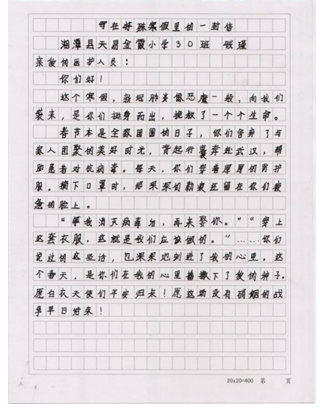 写在特殊寒假里的一封信
湘潭县天易金霞小学30班
亲爱的医护人员：
你们好！
这个寒假，当冠肺炎像恶魔一般，向我们
袭来，是你们挺身而出，挽救了一个个生命。
春节本是全家团圆的日子，你们舍弃了与
家人团聚的美好时光，背起行囊奔赴武汉，
患者对抗病毒。每天，你们穿着厚厚的防护
服。摘下口罩时，那深深的勒痕还留在你们疲
惫的脸上。
“等我消灭病毒后，再来娶你。”“穿上
这套衣服，这就是我们应该做的。”……你们
说过的这些话，已深深地刺进了我的心里。这
个春天，是你们在我的心里播下了爱的种子。
愿白衣天使们平安归来！愿这场没有硝烟的战
争早日结束！
20x20=400 第 页